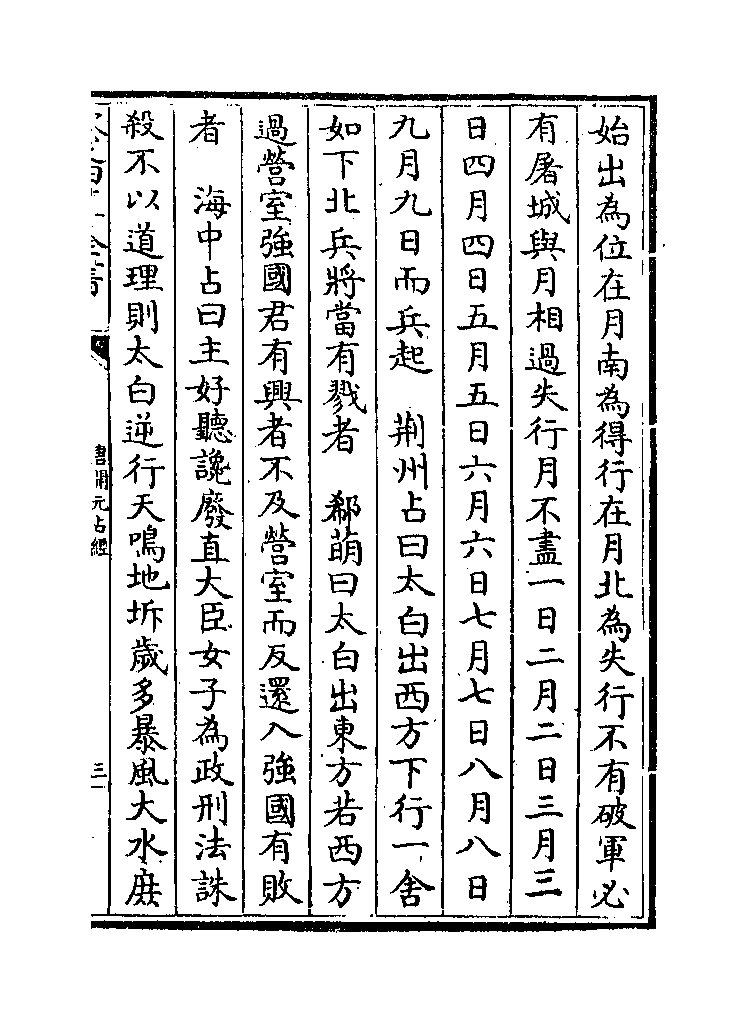 始出為位在月南為得行在月北為失行不有破軍必
有屠城與月相過失行月不盡一日二月二日三月三
日四月四日五月五日六月六日七月七日八月八日
九月九日而兵起　荆州占曰太白出西方下行一舍
如下北兵將當有戮者　郗萌曰太白出東方若西方
過營室強國君有興者不及營室而反還入強國有敗
者　海中占曰主好聽讒廢直大臣女子為政刑法誅
殺不以道理則太白逆行天鳴地坼歲多暴風大水庶
唐開元占經
三